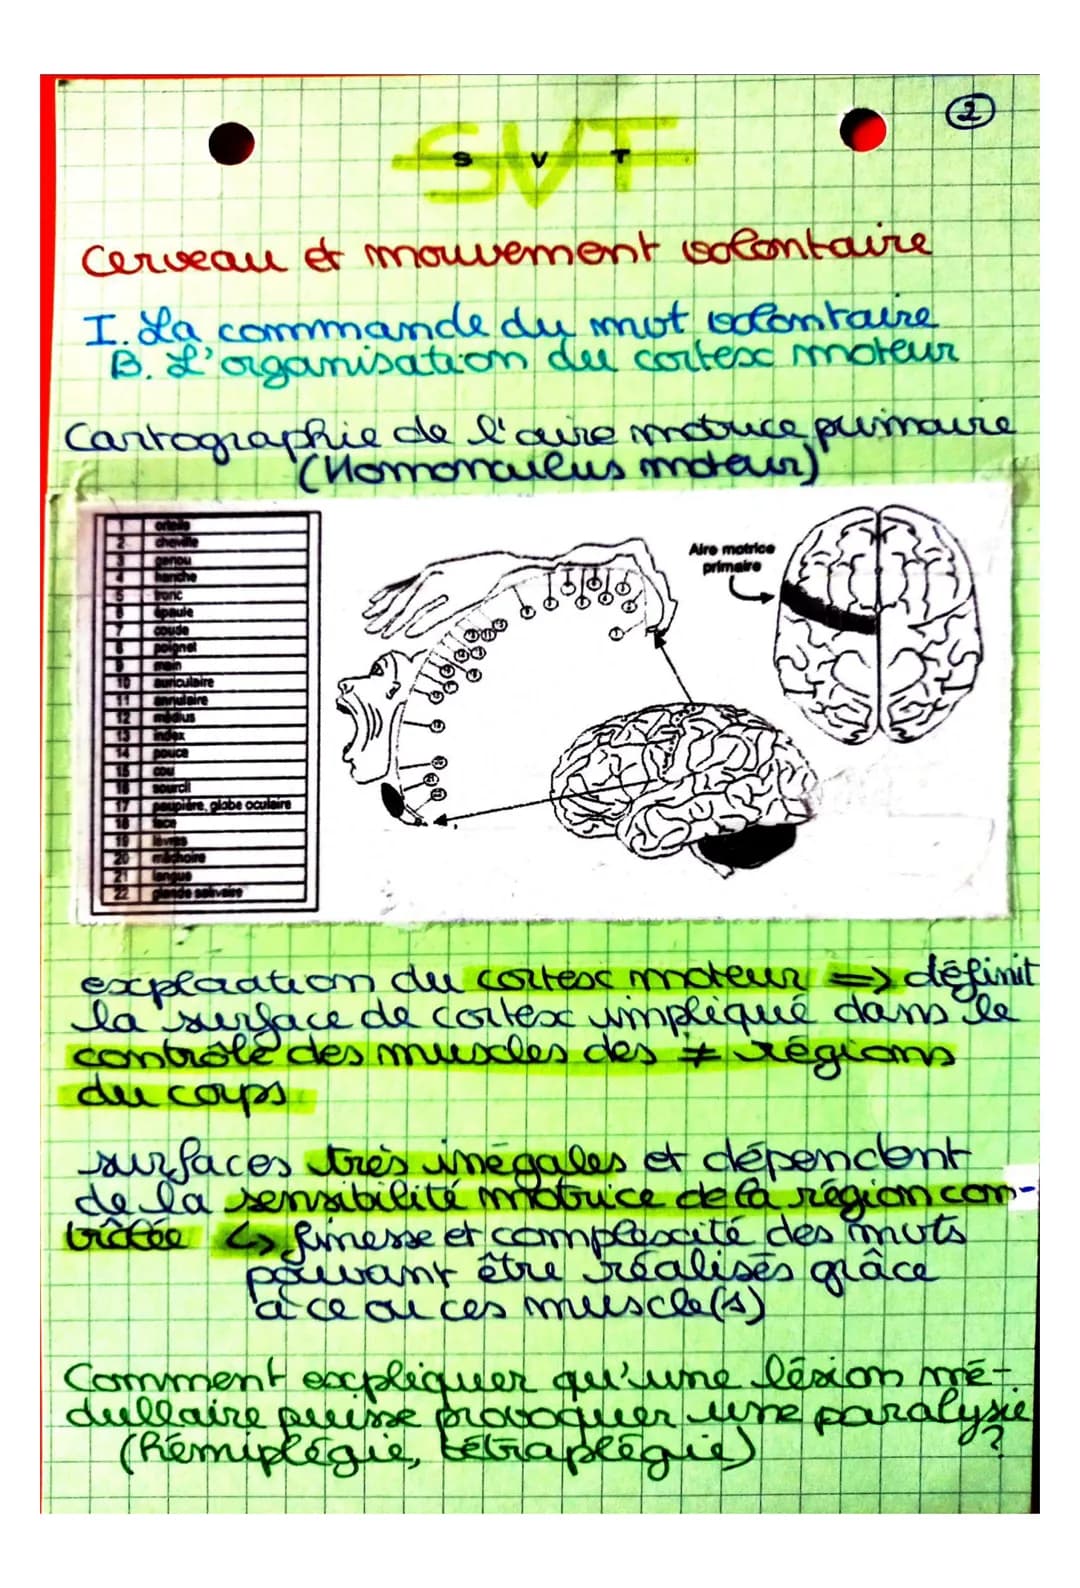 2
SVT
S V T
Cerveau et mouvement volontaire
I. La commande du mvt volontaire
B. L'organisation du cortex moteur
Cartographie de l'aire motrice primaire
(Homonculus moteur)
1 orteils
2 cheville
3 genou
4 hanche
5 tronc
6 épaule
7 coude
8 poignet
9 main
10 auriculaire
11 annulaire
12 médius
13 index
14 pouce
15 cou
16 sourcil
17 paupière, globe oculaire
18 face
19 lèvres
20 mâchoire
21 langue
22 glande salivaire
Aire motrice
primaire
exploration du cortex moteur => définit
la surface de cortex impliqué dans le
contrôle des muscles des ≠ régions
du corps
surfaces très inégales et dépendent
de la sensibilité motrice de la région con-
trôlée ↳ finesse et complexité des mvts
pouvant être réalisés grâce
à ce ou ces muscle(s)
Comment expliquer qu'une lésion mé-
dullaire puisse provoquer une paralysie
(hémiplégie, tétraplégie) ?